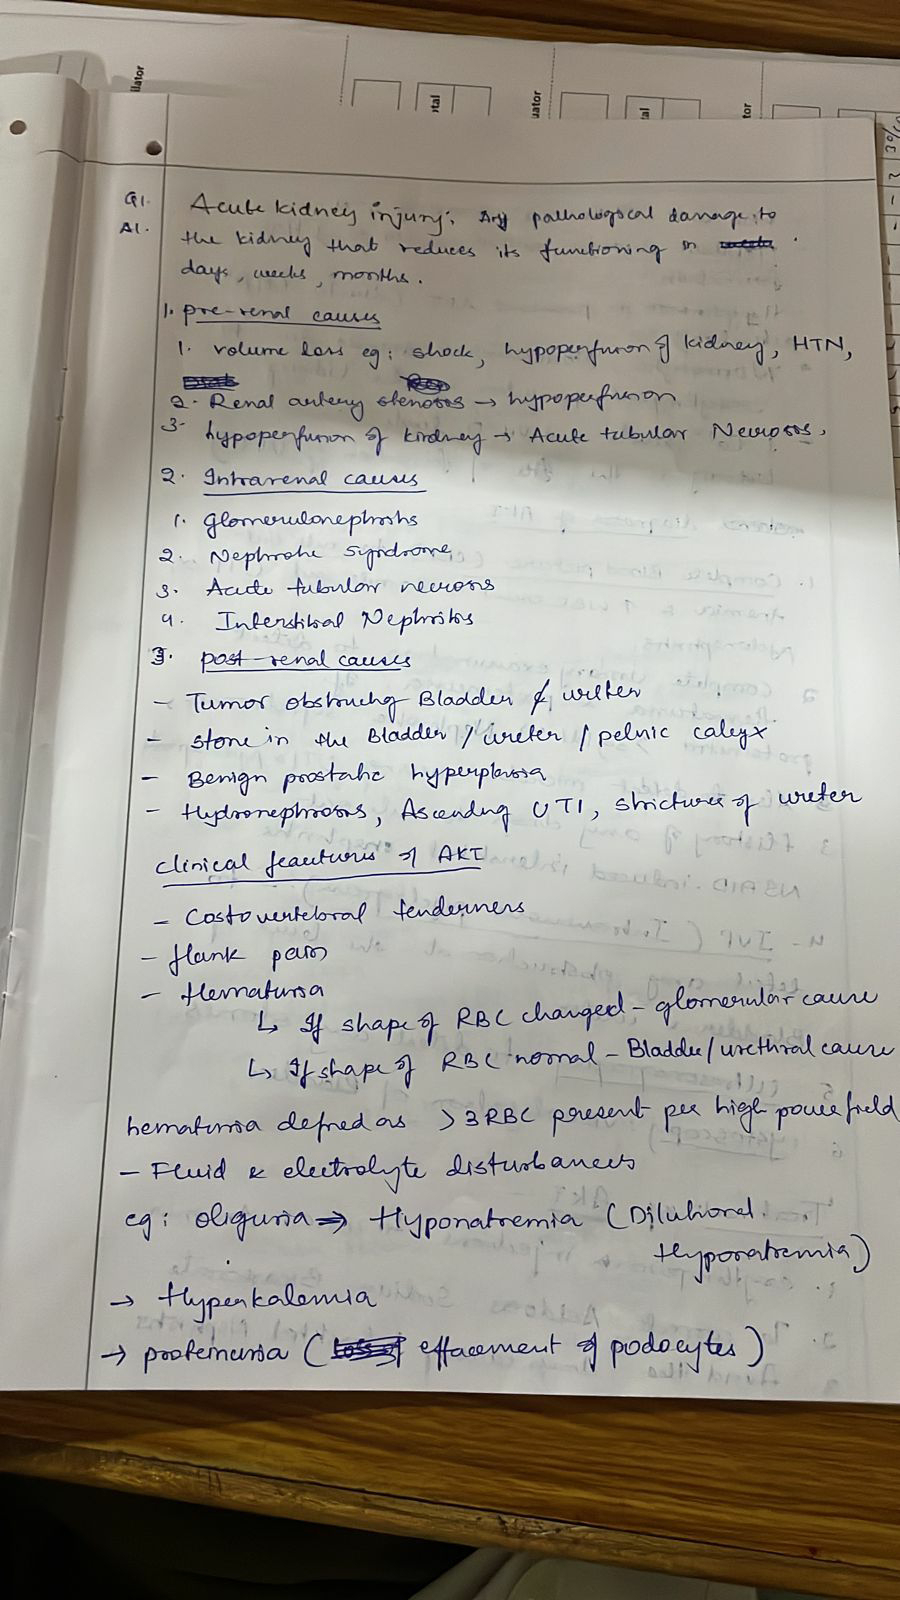 ilator
tal
uator
al
tor
Q1.
A1. Acute kidney injury: Any pathological damage to
the kidney that reduces its functioning in
days, weeks, months.
1. pre-renal causes
1. volume loss eg: shock, hypoperfusion of kidney, HTN,
2. Renal artery stenosis → hypoperfusion
3. hypoperfusion of kidney → Acute tubular Necrosis,
2. Intrarenal causes
1. Glomerulonephritis
2. Nephrotic syndrome
3. Acute tubular necrosis
4. Interstitial Nephritis
3. post-renal causes
- Tumor obstructing Bladder & ureter
- stone in the Bladder / ureter / pelvic calyx
- Benign prostatic hyperplasia
- Hydronephrosis, Ascending UTI, stricture of ureter
clinical feautures of AKI
- Costovertebral tenderness
- flank pain
- Hematuria
↳ If shape of RBC changed - glomerular cause
↳ If shape of RBC normal - Bladder/urethral cause
hematuria defined as >3 RBC present per high power field
- Fluid & electrolyte disturbances
eg: oliguria ⇒ Hyponatremia (Dilutional
Hyponatremia)
→ Hyperkalemia
→ proteinuria ( effacement of podocytes)